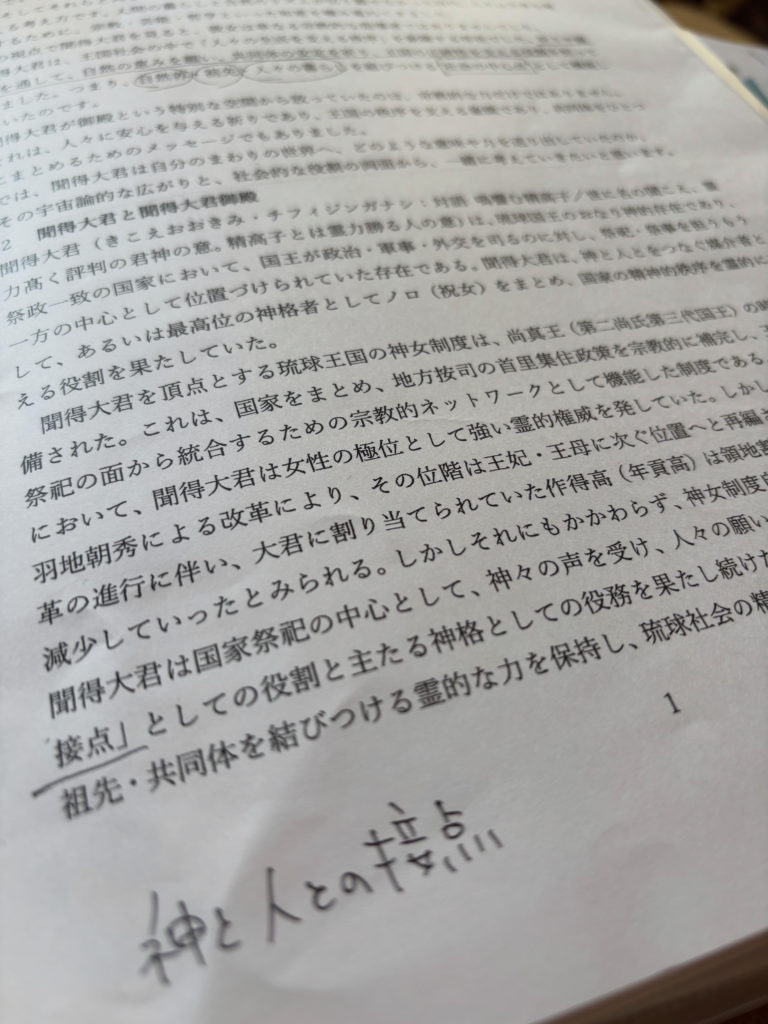 するために、宗教、芸能・哲学といった
の視点で聞得大君を見ると、
得大君は、王国社会の中で「人々の
を通して、自然の恵みを願い、共同体の安定を祈り、
ました。つまり、自然 祖先 人々の暮らし を結びつける
いたのです。
聞得大君が御殿という特別な空間から放っていたのは、
れは、人々に安心を与える祈りであり、王国の秩序を支える
とまとめるためのメッセージでもありました。
では、聞得大君は自分のまわりの世界へ、どのような意味や力を送り出していたのか。
その宇宙論的な広がりと、社会的な役割の両面から、一緒に考えていきたいと思います。
2 聞得大君と聞得大君御殿
聞得大君（きこえおおきみ・チフィジンガナシ：対語 鳴響む精高子／世に名の聞こえ、霊
力高く評判の君神の意。精高子とは霊力勝る人の意）は、琉球国王のおなり神的存在であり、
祭政一致の国家において、国王が政治・軍事・外交を司るのに対し、祭祀・祭事を担うもう
一方の中心として位置づけられていた存在である。聞得大君は、神と人とをつなぐ媒介者と
して、あるいは最高位の神格者としてノロ（祝女）をまとめ、国家の精神的秩序を霊的に
える役割を果たしていた。
聞得大君を頂点とする琉球王国の神女制度は、尚真王（第二尚氏第三代国王）の
備された。これは、国家をまとめ、地方按司の首里集住政策を宗教的に補完し、
祭祀の面から統合するための宗教的ネットワークとして機能した制度である
において、聞得大君は女性の極位として強い霊的権威を発していた。しかし
羽地朝秀による改革により、その位階は王妃・王母に次ぐ位置へと再編
革の進行に伴い、大君に割り当てられていた作得高（年貢高）は領地
減少していったとみられる。しかしそれにもかかわらず、神女制度
聞得大君は国家祭祀の中心として、神々の声を受け、人々の願い
接点」としての役割と主たる神格としての役務を果たし続けた
祖先・共同体を結びつける霊的な力を保持し、琉球社会の精
1
神と人との接点